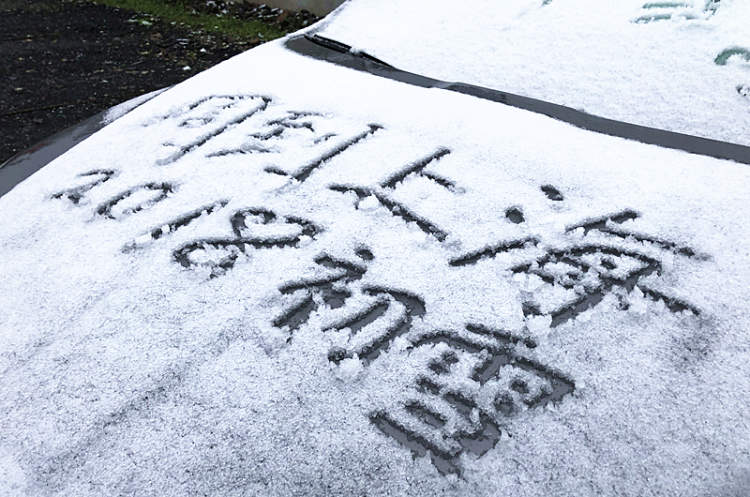 上海
2018初雪